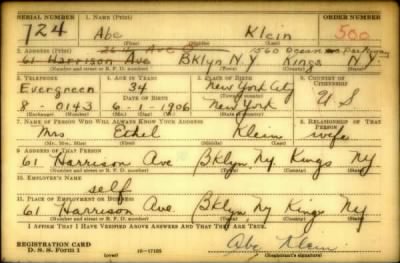 SERIAL NUMBER 1. NAME (Print) ORDER NUMBER
124 Abe Klein 500
(First) (Middle) (Last)
2. ADDRESS (Print) 1560 Ocean Parkway
61 Harrison Ave BKlyn N.Y Kings N.Y
(Number and street or R. F. D. number) (Town) (County) (State)
3. TELEPHONE 4. AGE IN YEARS 5. PLACE OF BIRTH 6. COUNTRY OF CITIZENSHIP
Evergreen 34 New York City
DATE OF BIRTH U S
8-0143 6-1-1906 New York
(Exchange) (Number) (Mo.) (Day) (Yr.) (State or country)
7. NAME OF PERSON WHO WILL ALWAYS KNOW YOUR ADDRESS 8. RELATIONSHIP OF THAT PERSON
Mrs Ethel Klein wife
(Mr., Mrs., Miss) (First) (Middle) (Last)
9. ADDRESS OF THAT PERSON
61 Harrison Ave BKlyn Ny Kings Ny
(Number and street or R. F. D. number) (Town) (County) (State)
10. EMPLOYER'S NAME
self
11. PLACE OF EMPLOYMENT OR BUSINESS
61 Harrison Ave. BKlyn Ny Kings Ny
(Number and street or R. F. D. number) (Town) (County) (State)
I AFFIRM THAT I HAVE VERIFIED ABOVE ANSWERS AND THAT THEY ARE TRUE.
REGISTRATION CARD
D. S. S. Form 1 (over) 16-17105 Abe Klein
(Registrant's signature)